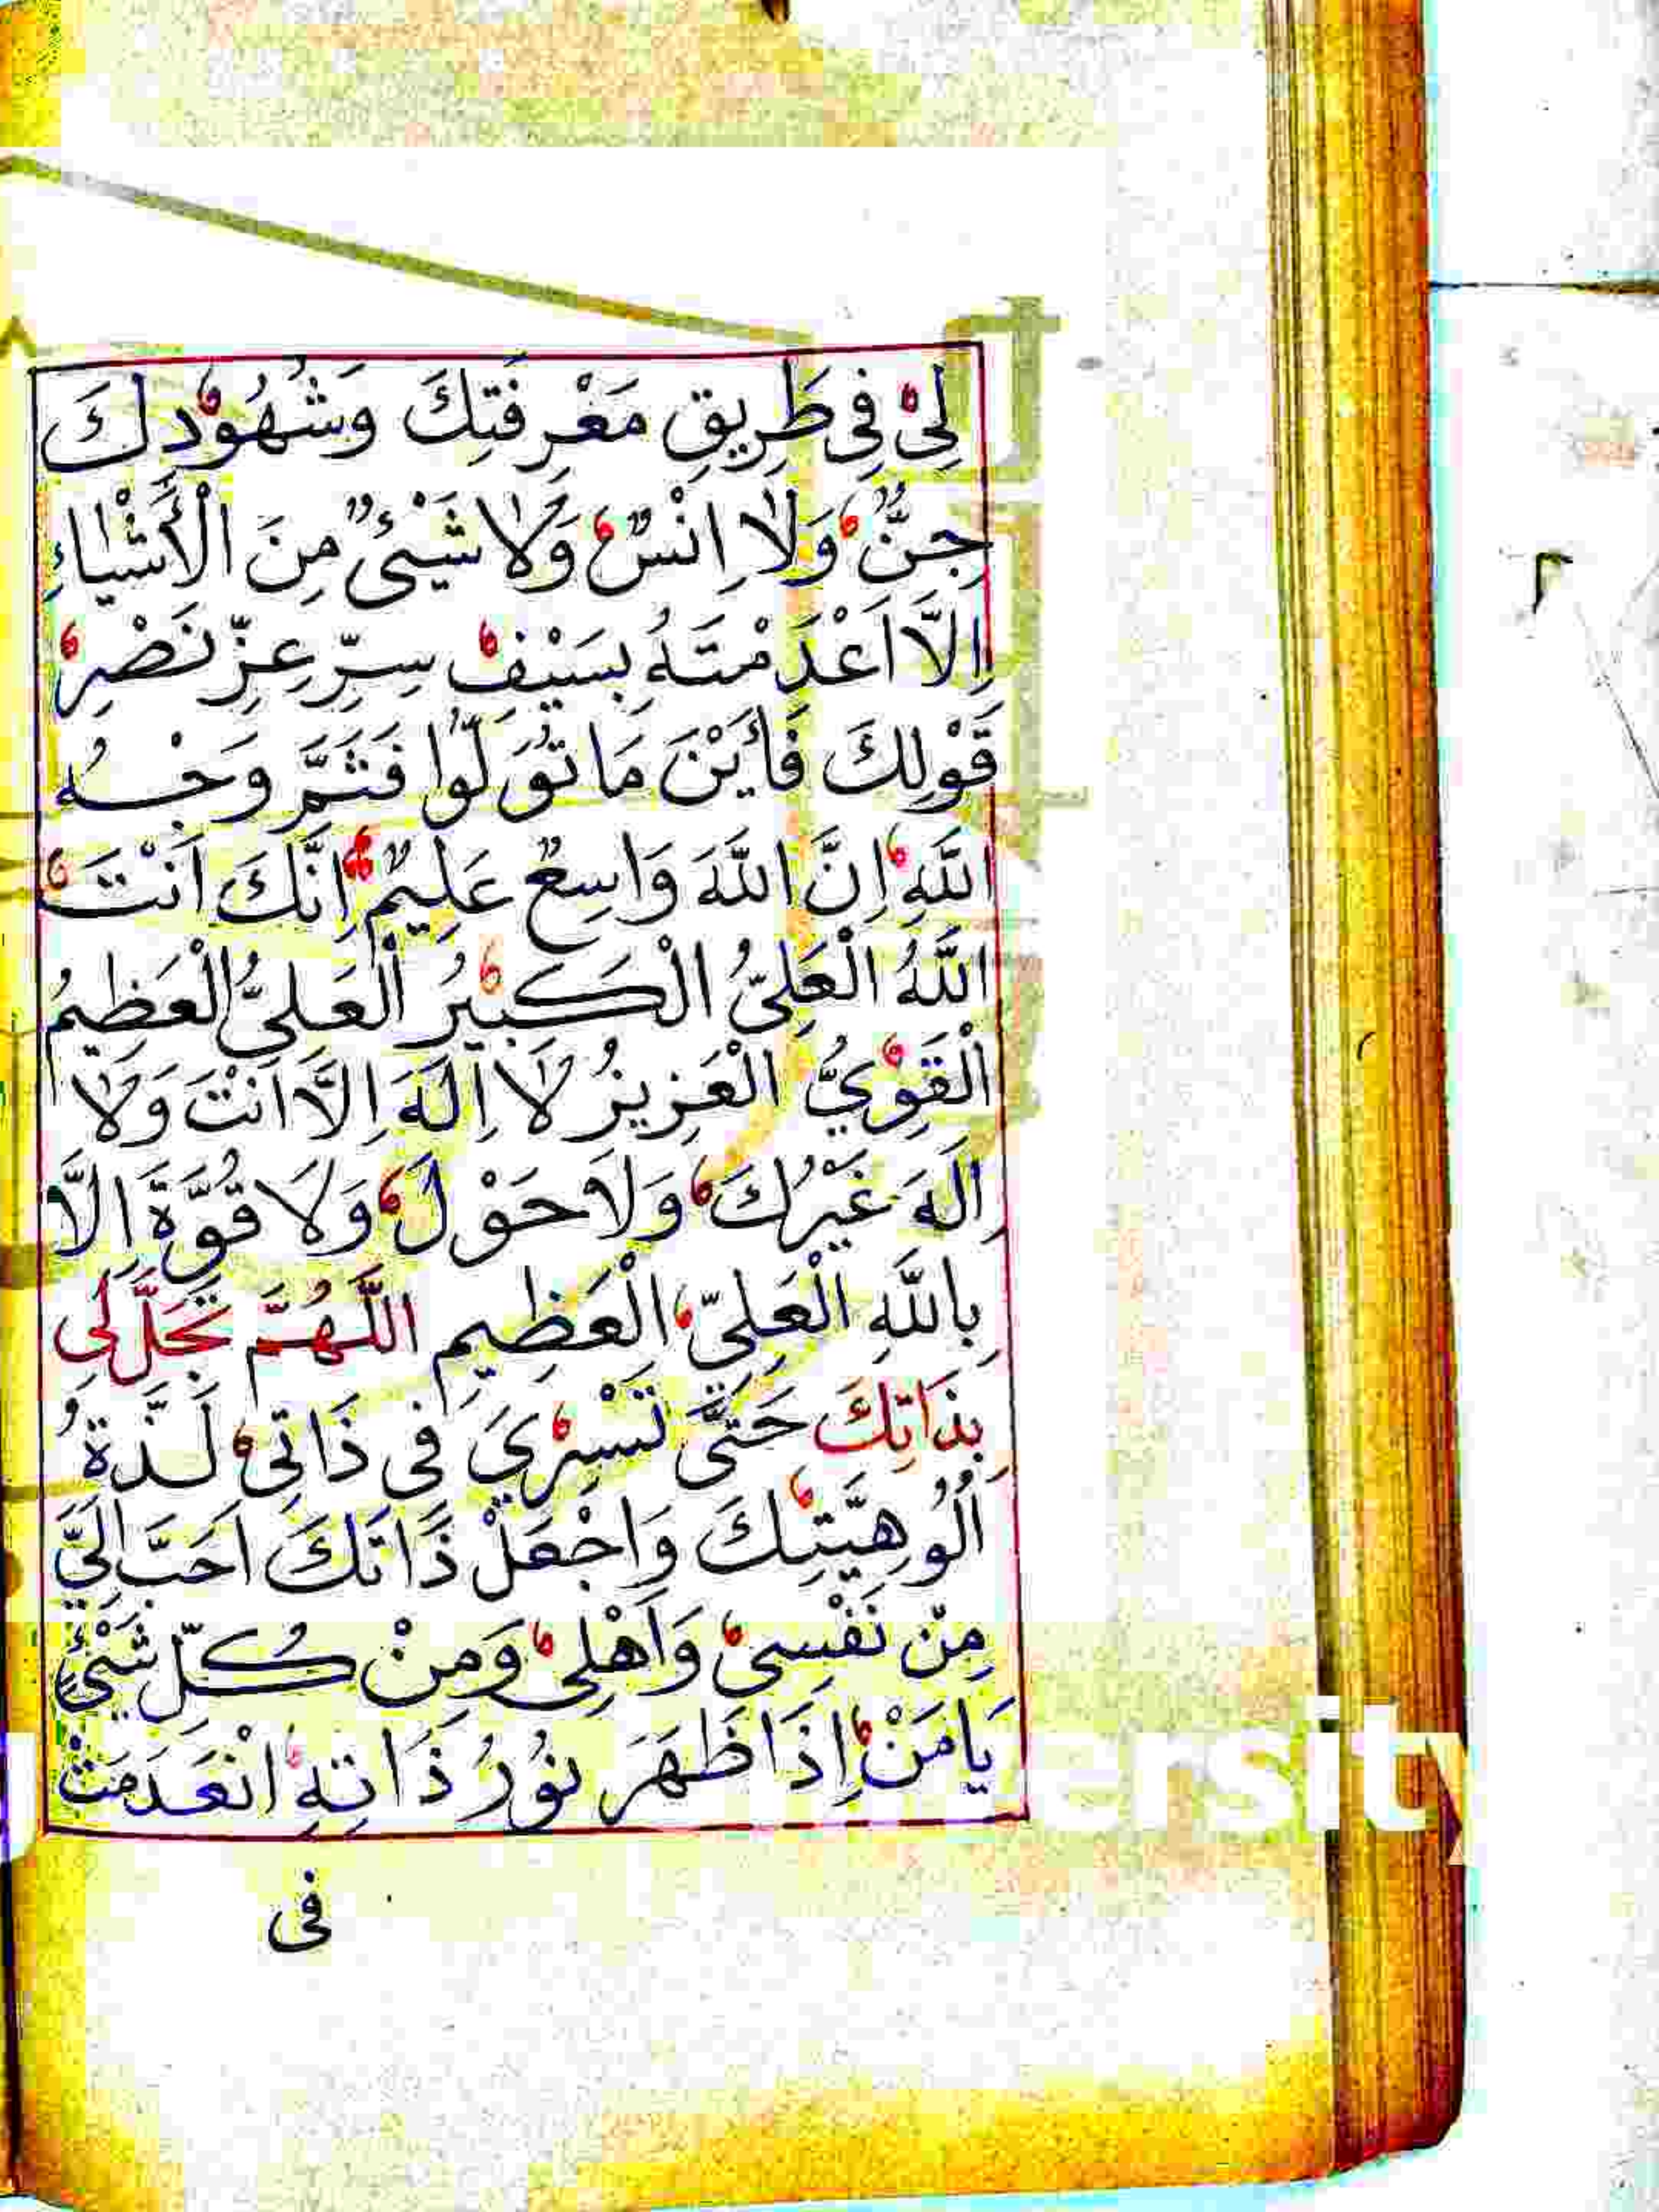 لِىْ فِى طَرِيقِ مَعْرِفَتِكَ وَشُهُوْدِكَ
جِنٌّ وَلَا اِنْسٌ وَلَا شَيْئٌ مِنَ الْأَشْيَاءِ
اِلَّا اَعْدَمْتَهُ بِسَيْفِ سِرِّ عِزِّ نَصْرِ
قَوْلِكَ فَأَيْنَ مَا تُوَلُّوا فَثَمَّ وَجْهُ
اللَّهِ اِنَّ اللَّهَ وَاسِعٌ عَلِيمٌ اِنَّكَ اَنْتَ
اللَّهُ الْعَلِىُّ الْكَبِيرُ الْعَلِىُّ الْعَظِيمُ
الْقَوِيُّ الْعَزِيزُ لَا اِلَهَ اِلَّا اَنْتَ وَلَا
اِلَهَ غَيْرُكَ وَلَا حَوْلَ وَلَا قُوَّةَ اِلَّا
بِاللَّهِ الْعَلِىِّ الْعَظِيمِ اللَّهُمَّ تَجَلَّ لِى
بِذَاتِكَ حَتَّى تَسْرِيَ فِى ذَاتِى لَذَّةُ
اُلُوهِيَّتِكَ وَاجْعَلْ ذَاتَكَ اَحَبَّ اِلَىَّ
مِنْ نَفْسِىْ وَاَهْلِى وَمِنْ كُلِّ شَيْئٍ
يَا مَنْ اِذَا ظَهَرَ نُوْرُ ذَاتِهِ انْعَدَمَتْ
فى
ersity
٣